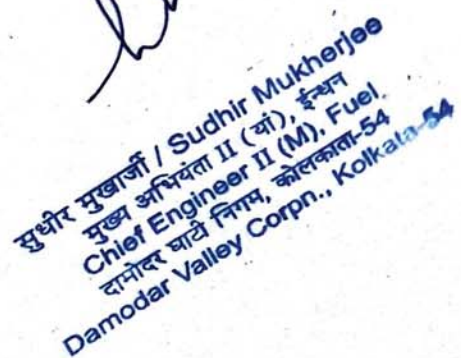 सुधीर मुखार्जी / Sudhir Mukherjee
मुख्य अभियंता II (यां), ईन्धन
Chief Engineer II (M), Fuel.
दामोदर घाटी निगम, कोलकाता-54
Damodar Valley Corpn., Kolkata-54